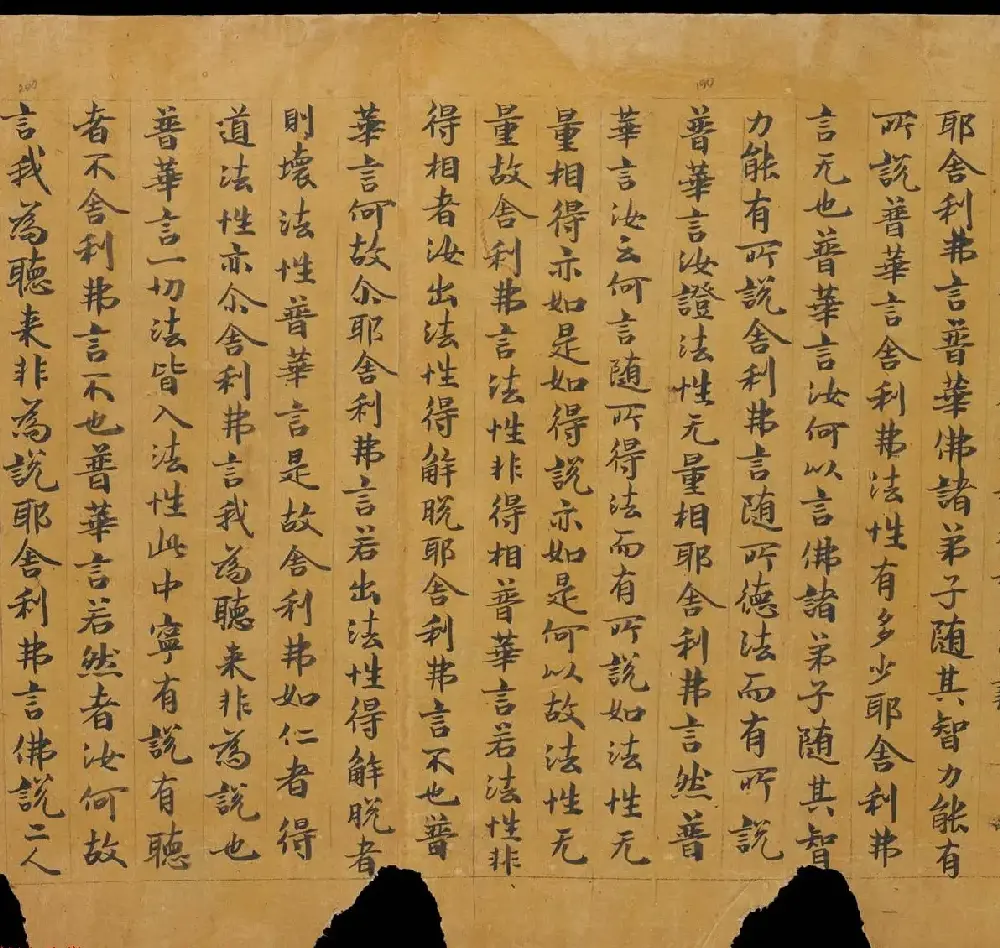 耶舍利弗言普華佛諸弟子随其智力能有
所說普華言舍利弗法性有多少耶舍利弗
言无也普華言汝何以言佛諸弟子随其智
力能有所說舍利弗言随所德法而有所說
普華言汝證法性无量相耶舍利弗言然普
華言汝云何言随所得法而有所說如法性无
量相得亦如是如得說亦如是何以故法性无
量故舍利弗言法性非得相普華言若法性非
得相者汝出法性得解脫耶舍利弗言不也普
華言何故尒耶舍利弗言若出法性得解脫者
則壞法性普華言是故舍利弗如仁者得
道法性亦尒舍利弗言我為聽来非為說也
普華言一切法皆入法性此中寧有說有聽
者不舍利弗言不也普華言若然者汝何故
言我為聽来非為說耶舍利弗言佛說二人